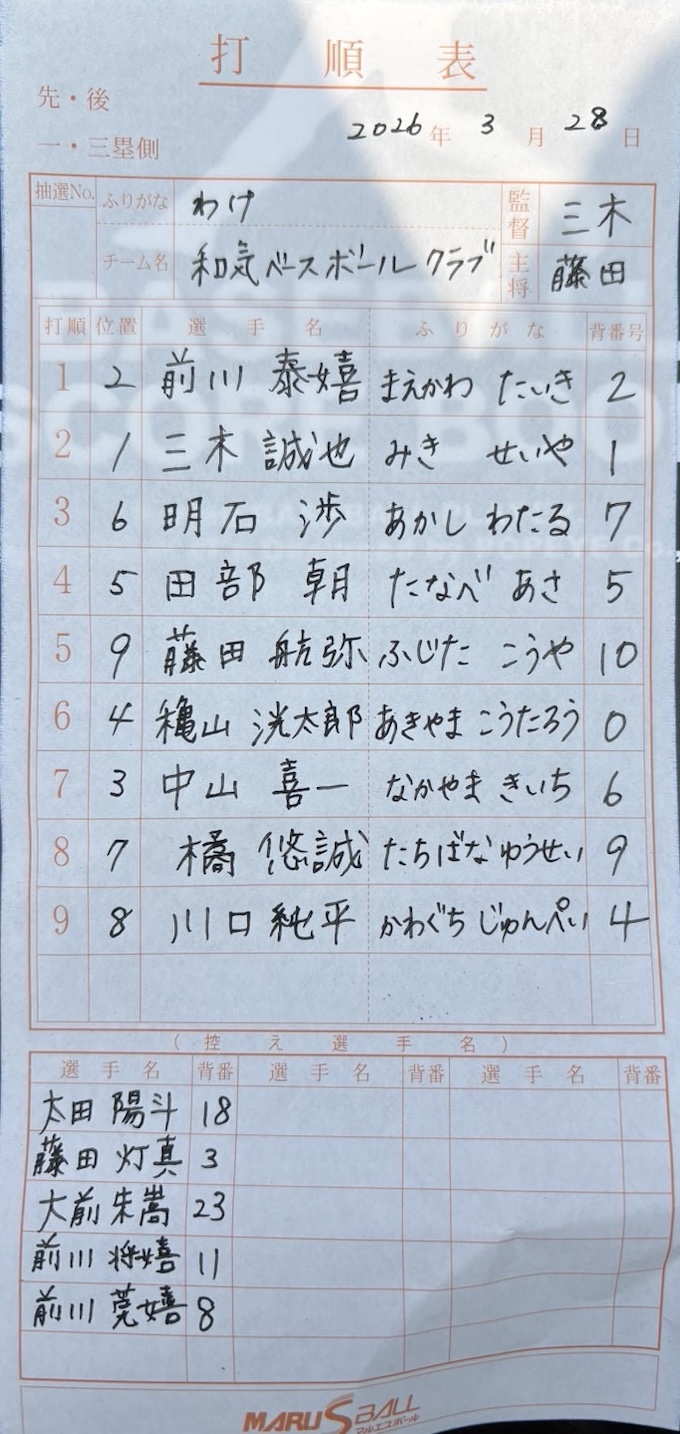 打順表
先・後
2026年 3月 28日
一・三塁側
抽選No. ふりがな わけ 監督 三木
チーム名 和気ベースボールクラブ 主将 藤田
打順 位置 選手名 ふりがな 背番号
1 2 前川 泰嬉 まえかわ たいき 2
2 1 三木 誠也 みき せいや 1
3 6 明石 渉 あかし わたる 7
4 5 田部 朝 たなべ あさ 5
5 9 藤田 航弥 ふじた こうや 10
6 4 龝山 洸太郎 あきやま こうたろう 0
7 3 中山 喜一 なかやま きいち 6
8 7 橘 悠誠 たちばな ゆうせい 9
9 8 川口 純平 かわぐち じゅんぺい 4
(控え選手名)
選手名 背番 選手名 背番 選手名 背番
太田 陽斗 18
藤田 灯真 3
大前 朱嵩 23
前川 将嬉 11
前川 莞嬉 8
MARU S BALL
マルエスボール